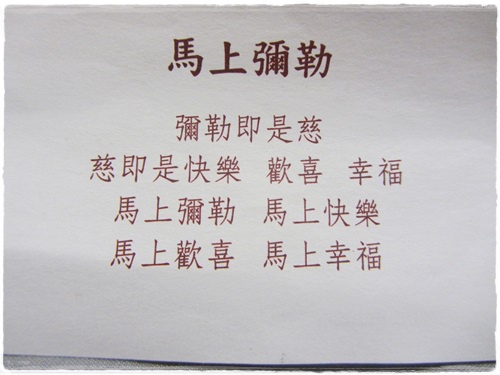 馬上彌勒
彌勒即是慈
慈即是快樂 歡喜 幸福
馬上彌勒 馬上快樂
馬上歡喜 馬上幸福